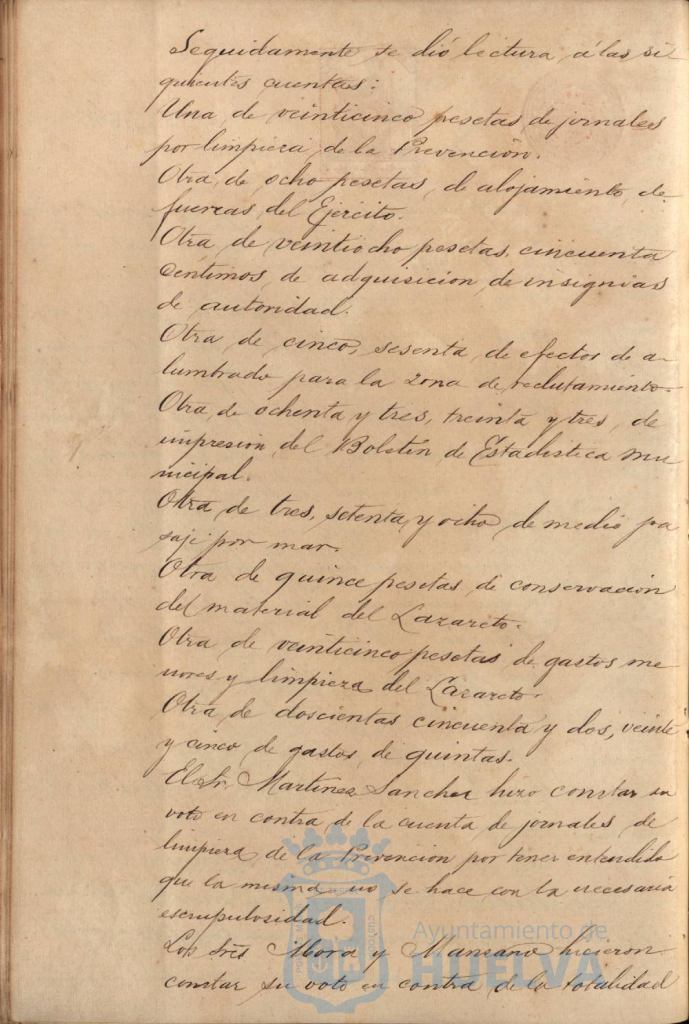 Seguidamente se dió lectura á las si
guientes cuentas:
Una de veinticinco pesetas de jornales
por limpieza de la Prevención.
Otra de ocho pesetas, de alojamiento de
fuerzas del Ejército.
Otra de veintiocho pesetas, cincuenta
céntimos de adquisicion de insignias
de autoridad.
Otra de cinco, sesenta de efectos de a-
lumbrado para la zona de reclutamiento.
Otra de ochenta y tres, treinta y tres, de
impresion del Boletín de Estadistica mu
nicipal.
Otra de tres, setenta y ocho de medio pa
saje por mar.
Otra de quince pesetas de conservacion
del material del Lazareto.
Otra de veinticinco pesetas de gastos me
nores y limpieza del Lazareto.
Otra de doscientas cincuenta y dos, veinte
y cinco de gastos de quintas.
El Sr. Martínez Sanchez hizo constar su
voto en contra de la cuenta de jornales de
limpieza de la Prevencion por tener entendido
que la misma no se hace con la necesaria
escrupulosidad.
Los Sres Mora y Manzano hicieron
constar su voto en contra de la totalidad
Ayuntamiento de
HUELVA